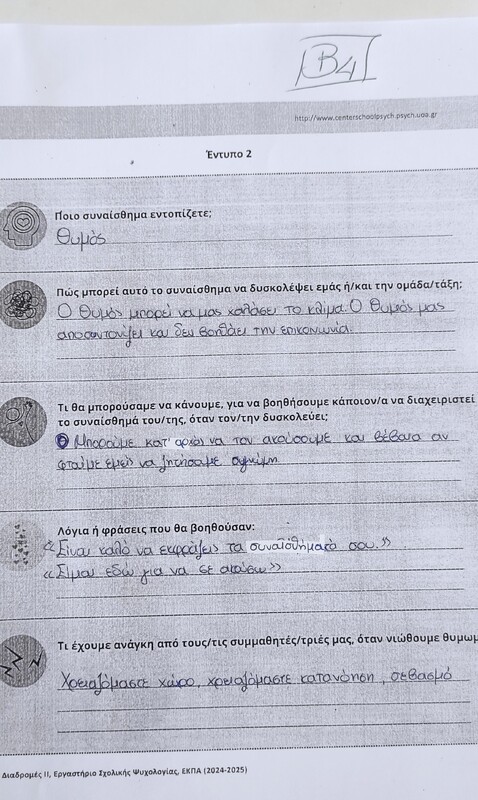 B4
http://www.centerschoolpsych.psych.uoa.gr
Έντυπο 2
Ποιο συναίσθημα εντοπίζετε;
Θυμός
Πώς μπορεί αυτό το συναίσθημα να δυσκολέψει εμάς ή/και την ομάδα/τάξη;
Ο Θυμός μπορεί να μας χαλάσει το κλίμα. Ο θυμός μας
αποσυντονίζει και δεν βοηθάει την επικοινωνία.
Τι θα μπορούσαμε να κάνουμε, για να βοηθήσουμε κάποιον/α να διαχειριστεί
το συναίσθημά του/της, όταν τον/την δυσκολεύει;
Μπορούμε κατ' αρχάς να τον ακούσουμε και βέβαια αν
φταίμε εμείς να ζητήσουμε συγνώμη
Λόγια ή φράσεις που θα βοηθούσαν:
«Είναι καλό να εκφράζεις τα συναισθήματά σου.»
«Είμαι εδώ για να σε ακούσω»
Τι έχουμε ανάγκη από τους/τις συμμαθητές/τριές μας, όταν νιώθουμε θυμωμ
Χρειαζόμαστε χώρο, χρειαζόμαστε κατανόηση, σεβασμό
Διαδρομές ΙΙ, Εργαστήριο Σχολικής Ψυχολογίας, ΕΚΠΑ (2024-2025)